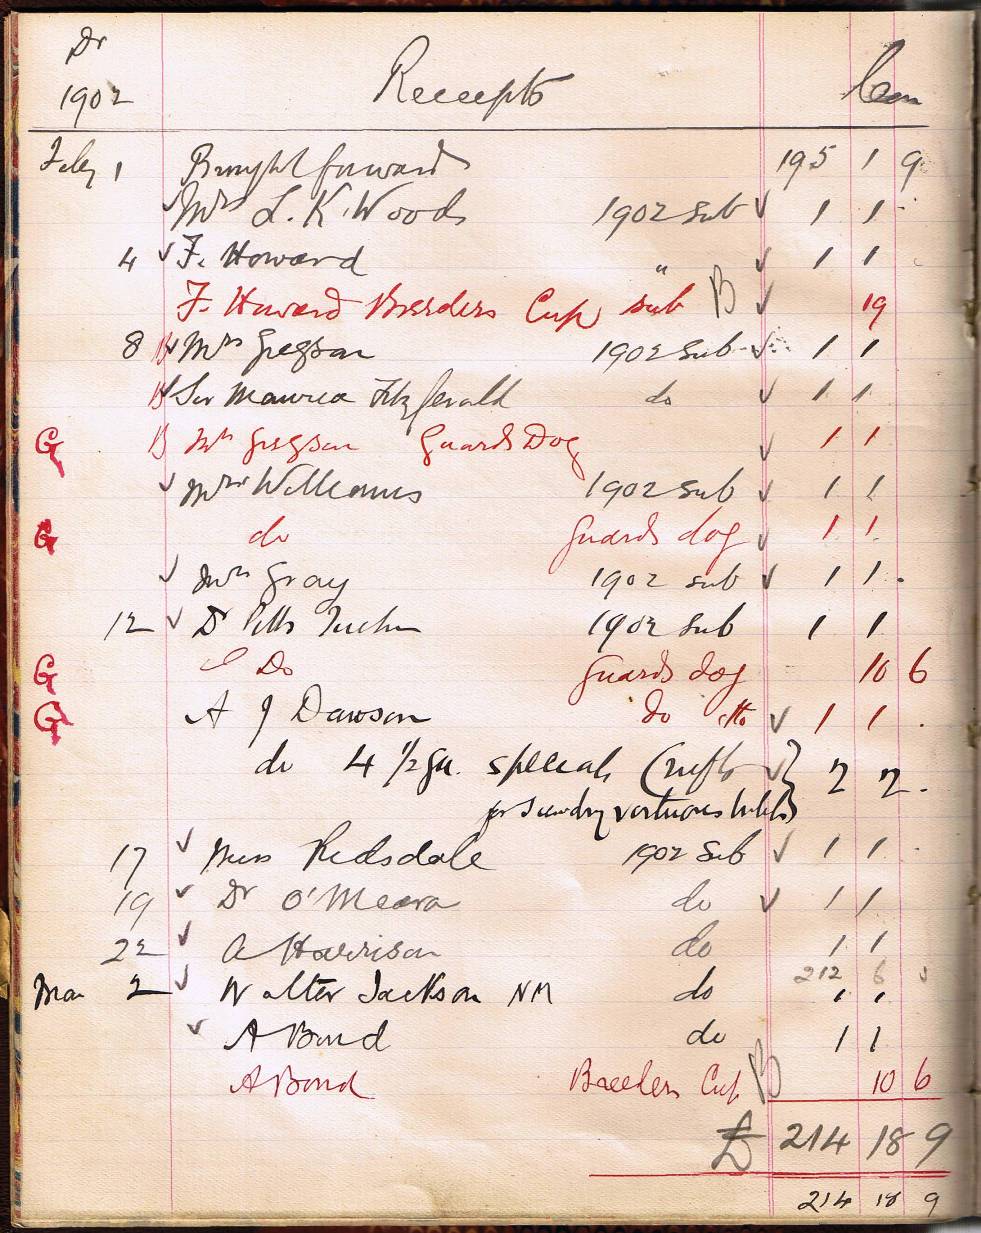 Dr
1902 Receipts
Feby 1 Brought forward 195 1 9
Mrs L. K. Woods 1902 Sub 1 1
4 F. Howard " 1 1
F. Howard Breeders Cup sub B 19
8 B Mrs Gregson 1902 Sub 1 1
B Sir Maurice Fitzgerald do 1 1
G B Mrs Gregson Guards Dog 1 1
Mrs Williams 1902 Sub 1 1
G do Guards dog 1 1
Mrs Gray 1902 sub 1 1
12 Dr Pitts Tucker 1902 Sub 1 1
G Do Guards dog 10 6
G A J Dawson Do 1 1
do 4 1/2 gn. specials 2 2
for Sundry
17 Miss Redsdale 1902 Sub 1 1
19 Dr O'Meara do 1 1
22 A Harrison do 1 1
212 6
Mar 2 Walter Jackson NM do 1 1
A Bond do 1 1
A Bond Breeders Cup B 10 6
£ 214 18 9
214 18 9